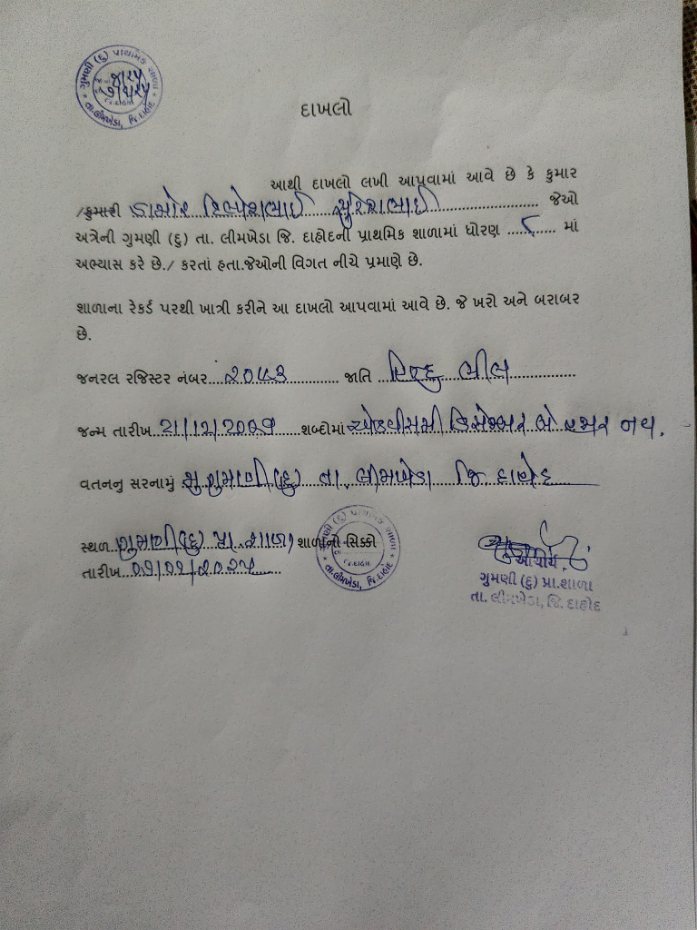 ગુમણી (દુ) પ્રાથમિક શાળા
તા.લીમખેડા, જિ.દાહોદ
દાખલો
આથી દાખલો લખી આપવામાં આવે છે કે કુમાર
/કુમારી ડામોર સુરેશભાઈ જેઓ
અત્રેની ગુમણી (દુ) તા. લીમખેડા જિ. દાહોદની પ્રાથમિક શાળામાં ધોરણ ૮ માં
અભ્યાસ કરે છે./ કરતાં હતા.જેઓની વિગત નીચે પ્રમાણે છે.
શાળાના રેકર્ડ પરથી ખાત્રી કરીને આ દાખલો આપવામાં આવે છે. જે ખરો અને બરાબર
છે.
જનરલ રજિસ્ટર નંબર જાતિ હિન્દુ ભીલ
જન્મ તારીખ શબ્દોમાં ડિસેમ્બર બે હજાર નવ.
વતનનુ સરનામું મુ ગુમાણી(દુ) તા. લીમખેડા જી દાહોદ
સ્થળ ગુમાણી(દુ) પ્રા. શાળા શાળાનો સિક્કો
તારીખ
ગુમણી (દુ) પ્રાથમિક શાળા
તા.લીમખેડા, જિ.દાહોદ
આચાર્ય
ગુમણી (દુ) પ્રા.શાળા
તા. લીમખેડા, જિ. દાહોદ